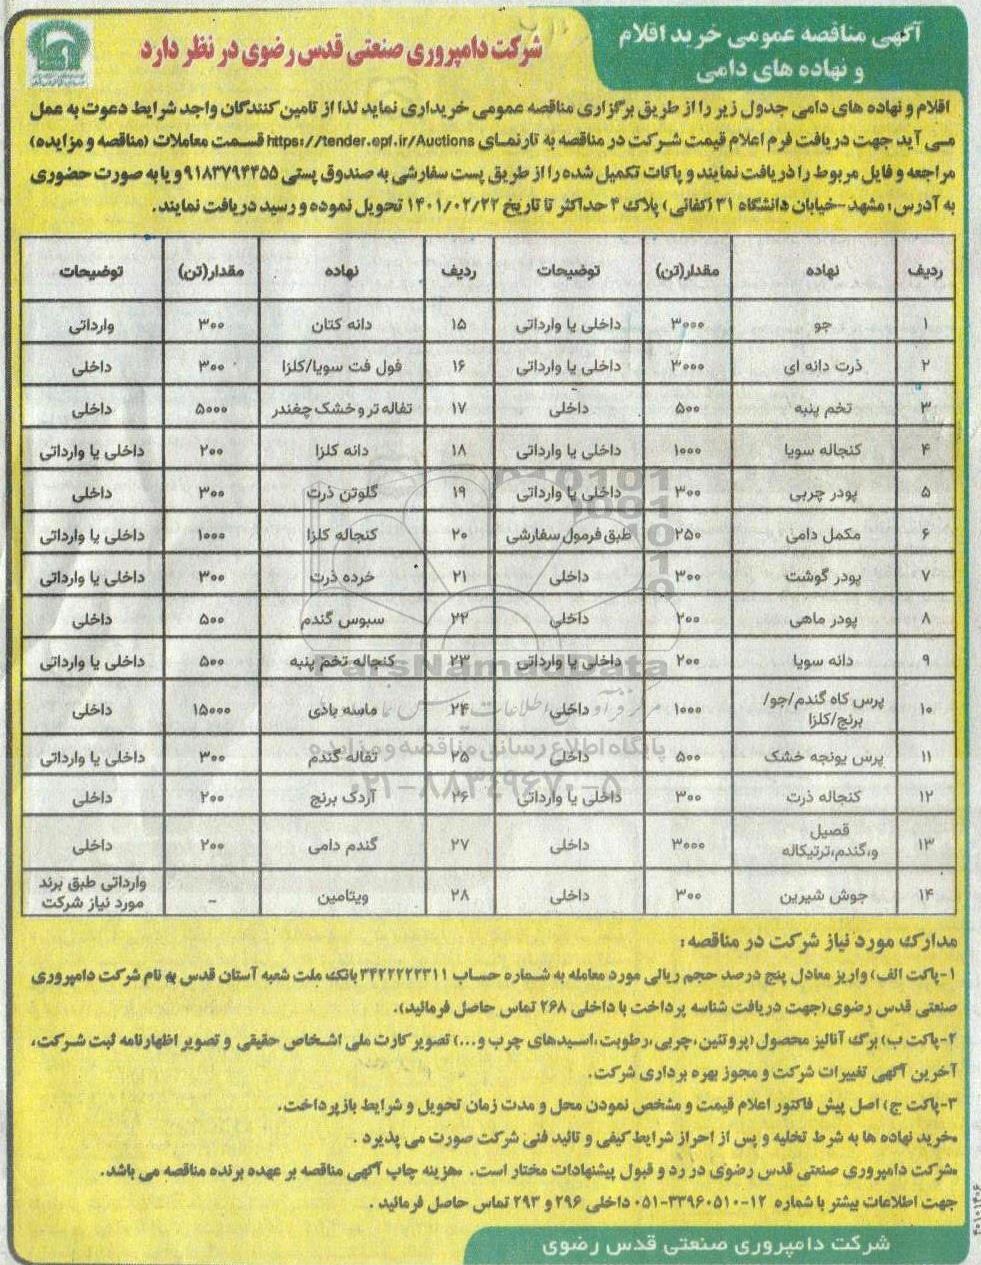 آگهی مناقصه عمومی خرید اقلام
و نهاده های دامی
شرکت دامپروری صنعتی قدس رضوی در نظر دارد
اقلام و نهاده های دامی جدول زیر را از طریق برگزاری مناقصه عمومی خریداری نماید لذا از تامین کنندگان واجد شرایط دعوت به عمل
می آید جهت دریافت فرم اعلام قیمت شرکت در مناقصه به تارنمای https://tender.epf.ir/Auctions قسمت معاملات (مناقصه و مزایده)
مراجعه و فایل مربوط را دریافت نمایند و پاکات تکمیل شده را از طریق پست سفارشی به صندوق پستی ۹۱۸۳۷۹۴۴۵۵ و یا به صورت حضوری
به آدرس: مشهد-خیابان دانشگاه ۳۱ (کفائی) پلاک ۴ حداکثر تا تاریخ ۱۴۰۱/۰۲/۲۲ تحویل نموده و رسید دریافت نمایند.
ردیف نهاده مقدار(تن) توضیحات ردیف نهاده مقدار(تن) توضیحات
۱ جو ۳۰۰۰ داخلی یا وارداتی ۱۵ دانه کتان ۳۰۰ وارداتی
۲ ذرت دانه ای ۳۰۰۰ داخلی یا وارداتی ۱۶ فول فت سویا/کلزا ۳۰۰ داخلی
۳ تخم پنبه ۵۰۰ داخلی ۱۷ تفاله تر و خشک چغندر ۵۰۰۰ داخلی
۴ کنجاله سویا ۱۰۰۰ داخلی یا وارداتی ۱۸ دانه کلزا ۲۰۰ داخلی یا وارداتی
۵ پودر چربی ۳۰۰ داخلی یا وارداتی ۱۹ گلوتن ذرت ۳۰۰ داخلی
۶ مکمل دامی ۲۵۰ طبق فرمول سفارشی ۲۰ کنجاله کلزا ۱۰۰۰ داخلی یا وارداتی
۷ پودر گوشت ۳۰۰ داخلی ۲۱ خرده ذرت ۳۰۰ داخلی یا وارداتی
۸ پودر ماهی ۲۰۰ داخلی ۲۲ سبوس گندم ۵۰۰ داخلی
۹ دانه سویا ۲۰۰ داخلی یا وارداتی ۲۳ کنجاله تخم پنبه ۵۰۰ داخلی یا وارداتی
۱۰ پرس کاه گندم/جو/برنج/کلزا ۱۰۰۰ داخلی ۲۴ ماسه بادی ۱۵۰۰۰ داخلی
۱۱ پرس یونجه خشک ۵۰۰ داخلی ۲۵ تفاله گندم ۳۰۰ داخلی یا وارداتی
۱۲ کنجاله ذرت ۳۰۰ داخلی یا وارداتی ۲۶ آردک برنج ۲۰۰ داخلی
۱۳ قصیل و،گندم،ترتیکاله ۳۰۰۰ داخلی ۲۷ گندم دامی ۲۰۰ داخلی
۱۴ جوش شیرین ۳۰۰ داخلی ۲۸ ویتامین - وارداتی طبق برند مورد نیاز شرکت
ParsNamadData
پایگاه اطلاع رسانی مناقصه و مزایده
۰۲۱-۸۸۳۴۹۶۷۰-۵
مدارک مورد نیاز شرکت در مناقصه:
۱-پاکت الف) واریز معادل پنج درصد حجم ریالی مورد معامله به شماره حساب ۳۴۲۲۲۲۲۳۱۱ بانک ملت شعبه آستان قدس به نام شرکت دامپروری
صنعتی قدس رضوی(جهت دریافت شناسه پرداخت با داخلی ۲۶۸ تماس حاصل فرمائید).
۲-پاکت ب) برگ آنالیز محصول (پروتئین،چربی،رطوبت،اسیدهای چرب و...) تصویر کارت ملی اشخاص حقیقی و تصویر اظهارنامه ثبت شرکت،
آخرین آگهی تغییرات شرکت و مجوز بهره برداری شرکت.
۳-پاکت ج) اصل پیش فاکتور اعلام قیمت و مشخص نمودن محل و مدت زمان تحویل و شرایط بازپرداخت.
•خرید نهاده ها به شرط تخلیه و پس از احراز شرایط کیفی و تائید فنی شرکت صورت می پذیرد .
•شرکت دامپروری صنعتی قدس رضوی در رد و قبول پیشنهادات مختار است. •هزینه چاپ آگهی مناقصه بر عهده برنده مناقصه می باشد.
جهت اطلاعات بیشتر با شماره ۱۲-۳۳۹۶۰۵۱۰-۰۵۱ داخلی ۲۹۶ و ۲۹۳ تماس حاصل فرمائید .
شرکت دامپروری صنعتی قدس رضوی
۴۰۱۰۱۴۰۶